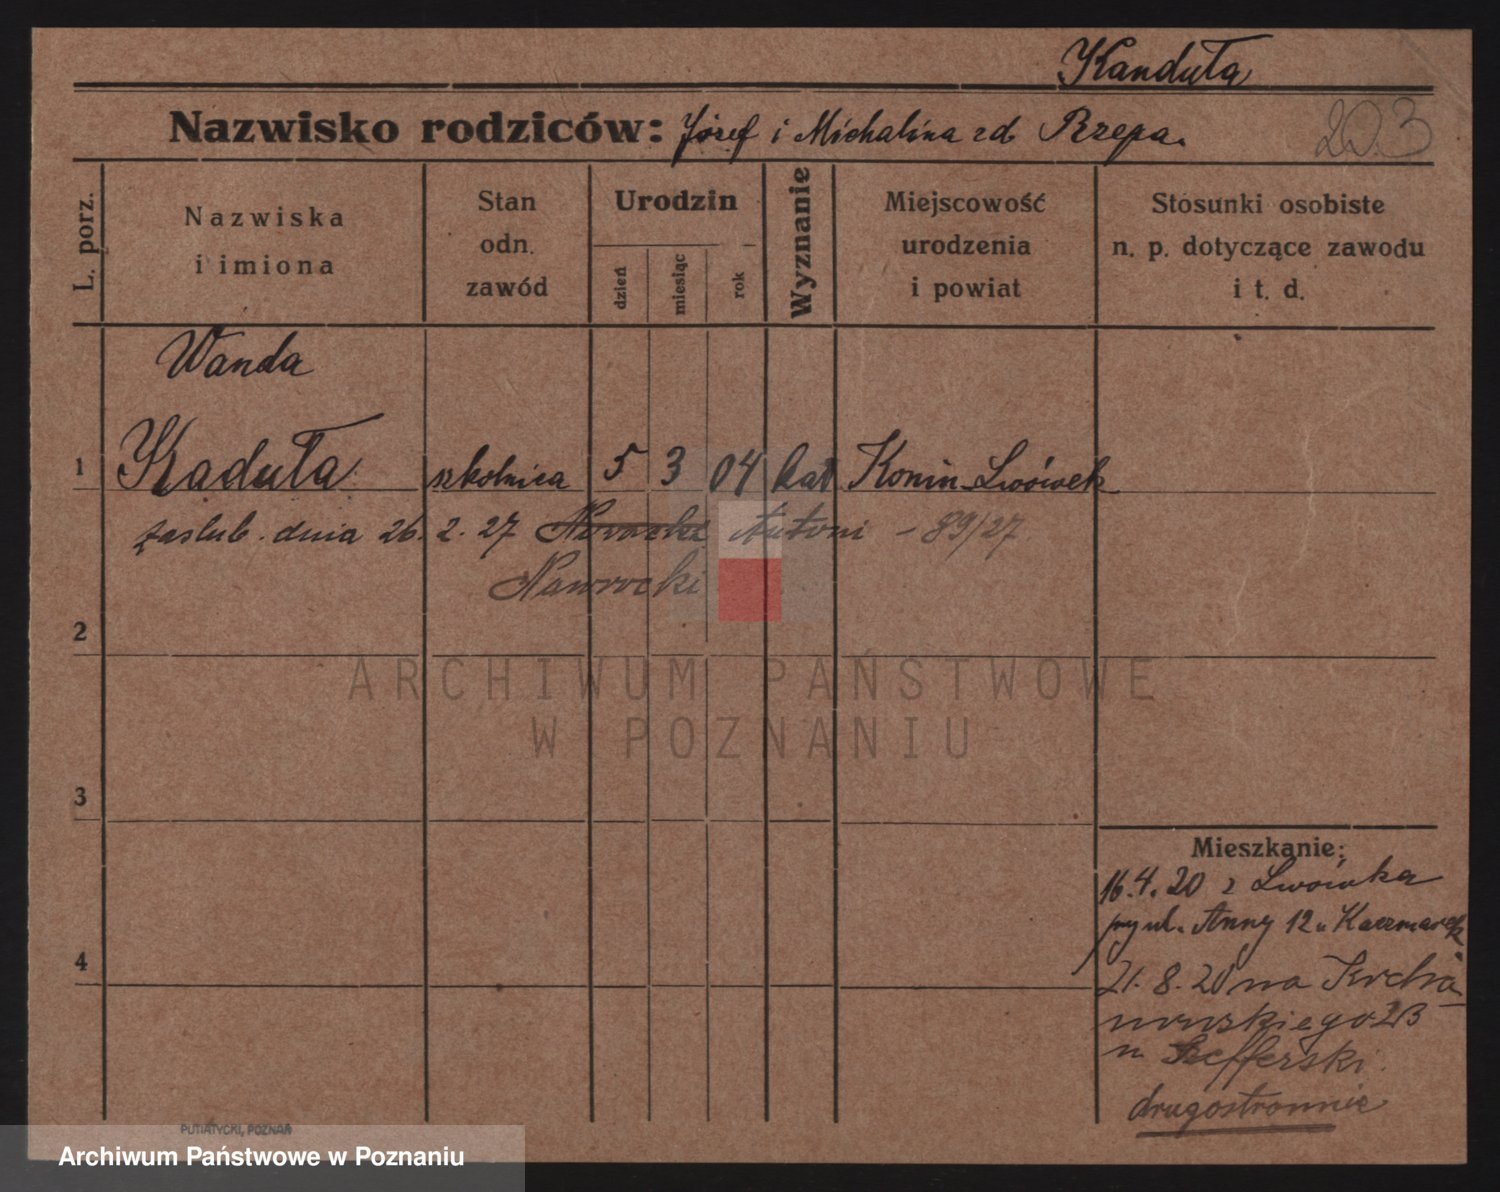 Kanduła
Nazwisko rodziców: Józef i Michalina zd Rzepa.
203
L. porz.
Nazwiska
i imiona
Stan
odn.
zawód
Urodzin
dzień
miesiąc
rok
Wyznanie
Miejscowość
urodzenia
i powiat
Stosunki osobiste
n. p. dotyczące zawodu
i t. d.
Wanda
1 Kaduła szkolnica 5 3 04 kat Konin-Lwówek
zaslub. dnia 26. 2. 27 Nowacki Antoni - 89/27
Nawrocki
2
ARCHIWUM PAŃSTWOWE
W POZNANIU
3
Mieszkanie:
16.4.20 z Lwówka
przy ul. Anny 12 u Kaczmarek
4
21.8.20 na Kocha
nowskiego 2B
u Szefferski.
drugostronnie
PUTIATYCKI, POZNAŃ
Archiwum Państwowe w Poznaniu